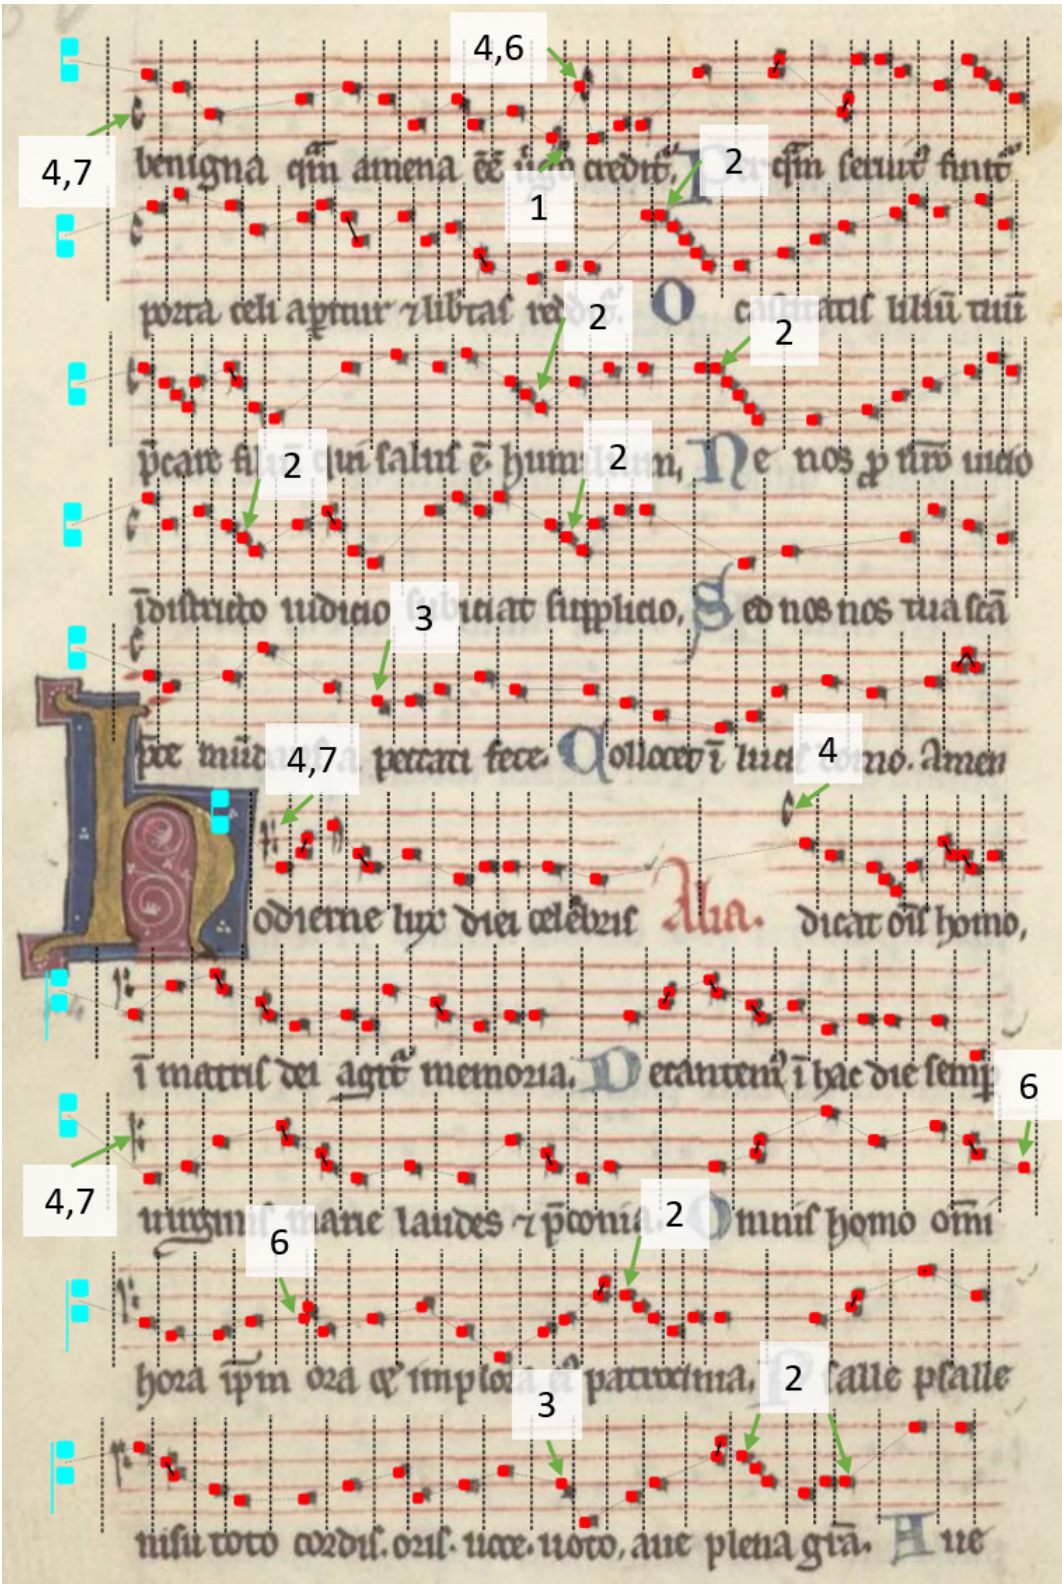 4,6
4,7
benigna q̄m amena ēē credit᷑. q̄m seruit᷑ finit᷑
1 2
porta celi aꝑitur ⁊ libtas O castitatis liliū tuū
2 2
p̄care qui salus ē. Ne nos ꝑ uicio
2 2
īdistricto iudicio subiciat supplicio, Sed nos nos tua scā
3
p̄ce peccati fece. Collocet ī lucis domo. Amen
4,7 4
Hodierne lux diei celebris Alia. dicat oīs homo,
ī matris dei agit᷑ memoria. Decantem᷒ ī hac die semꝑ
6
4,7
uirginis marie laudes ⁊ p̄conia. Omnis homo omni
2
6
hora ip̄m ora patrocinia, Psalle psalle
3 2
nisu toto cordis. oris. uoce. uoto, aue plena grā. Aue